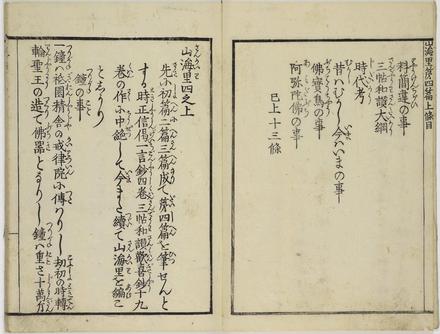 山海里第四篇上條目
料簡違の事
三帖和讃大綱
時代考
昔ハむかし今ハいまの事
佛寳鳥の事
阿弥陀佛の事
已上十三條
山海里四之上
先に初篇二篇三篇成て第四篇を筆せんと
する時正信偈一言鈔四卷三帖和讃歡喜鈔十九
卷の作に中絶して今また續て山海里を編こ
としかり
鐘の事
一鐘ハ祇園精舎の戒律院に傳ハりし劫初の時轉
輪聖王の造て佛器とるりし鐘ハ重さ十萬斤